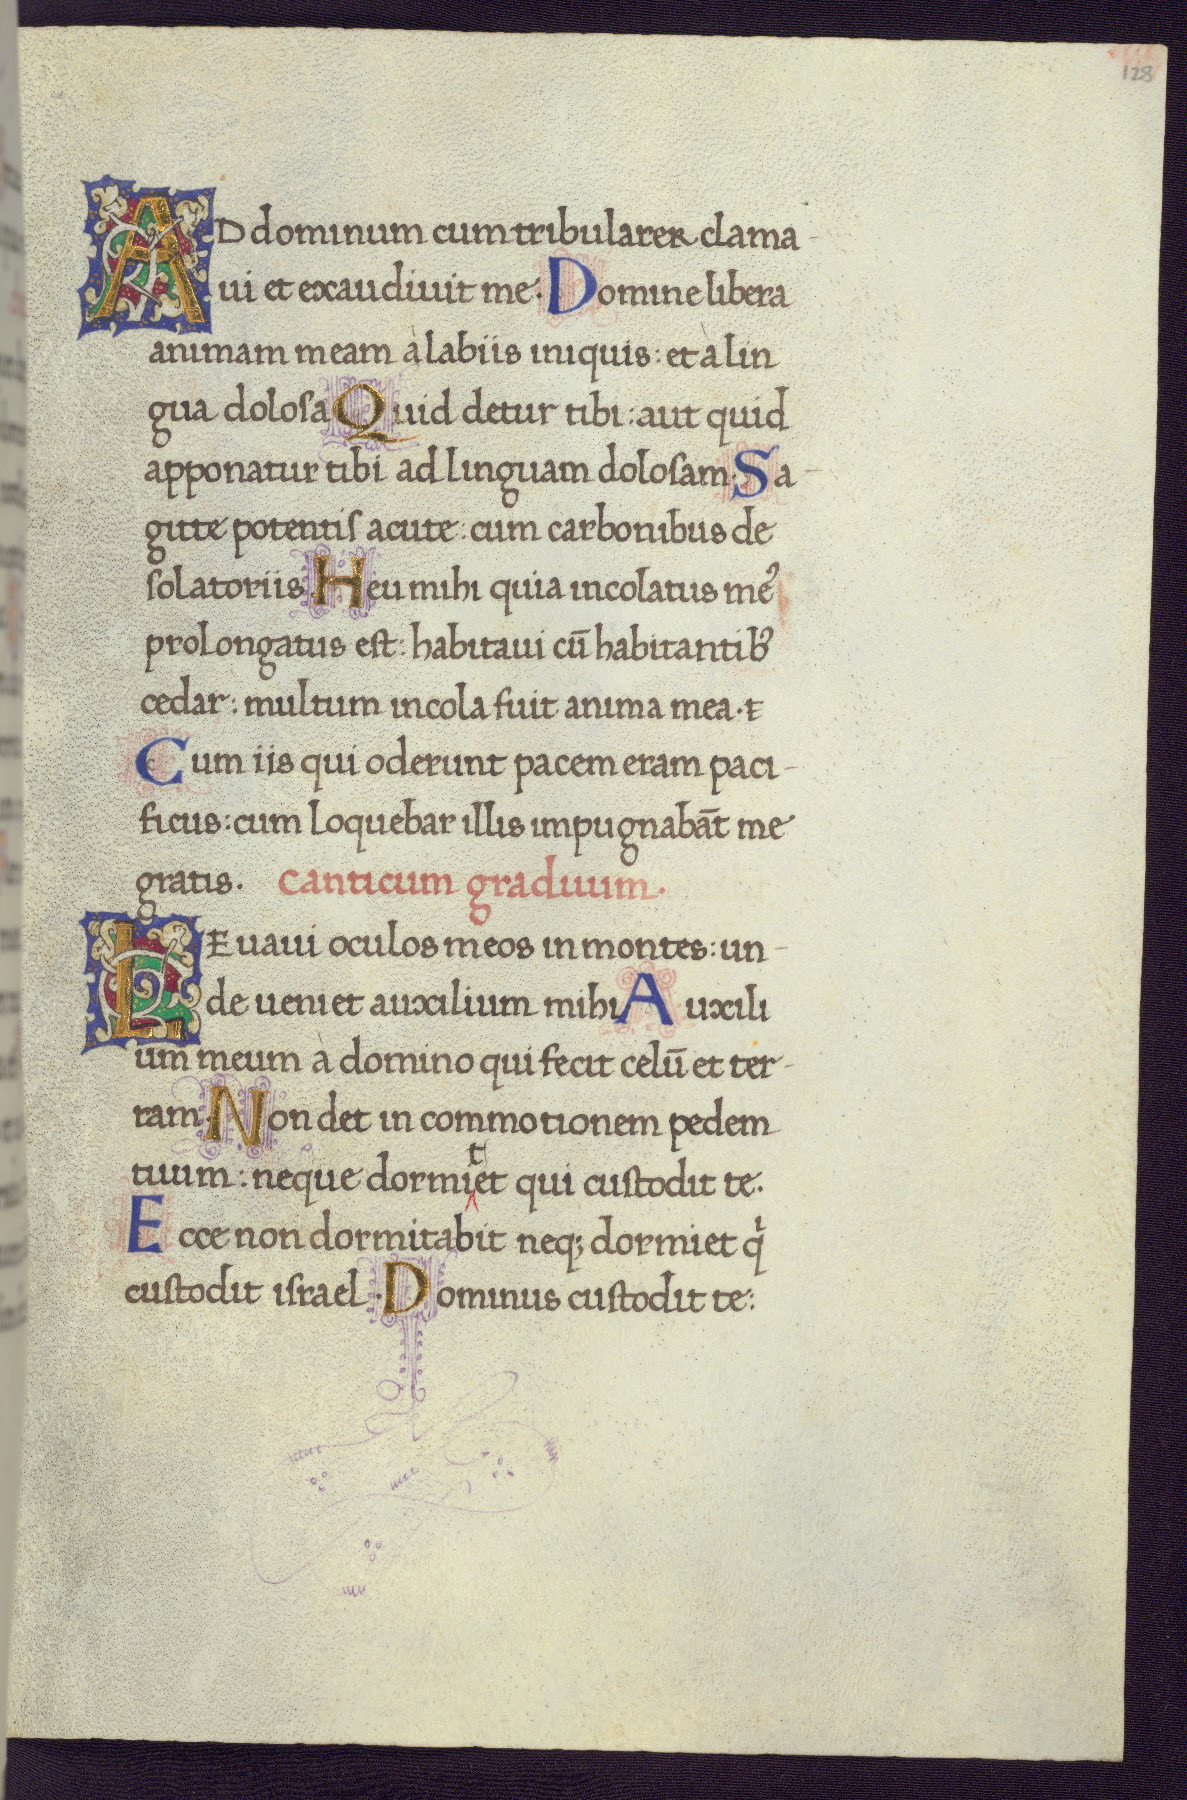 128
AD dominum cum tribularer clama-
ui et exaudiuit me. Domine libera
animam meam à labiis iniquis: et à lin
gua dolosa Quid detur tibi: aut quid
apponatur tibi ad linguam dolosam. Sa-
gitte potentis acute: cum carbonibus de
solatoriis Heu mihi quia incolatus me⁹
prolongatus est: habitaui cū habitantib⁹
cedar: multum incola fuit anima mea. t
Cum iis qui oderunt pacem eram paci-
ficus: cum loquebar illis impugnabāt me
gratis. Canticum graduum.
LEuaui oculos meos in montes: un-
de ueniet auxilium mihi Auxili
um meum à domino qui fecit celū et ter-
ram. Non det in commotionem pedem
tuum: neque dormitet qui custodit te.
Ecce non dormitabit neq; dormiet qⁱ
custodit israel. Dominus custodit te: